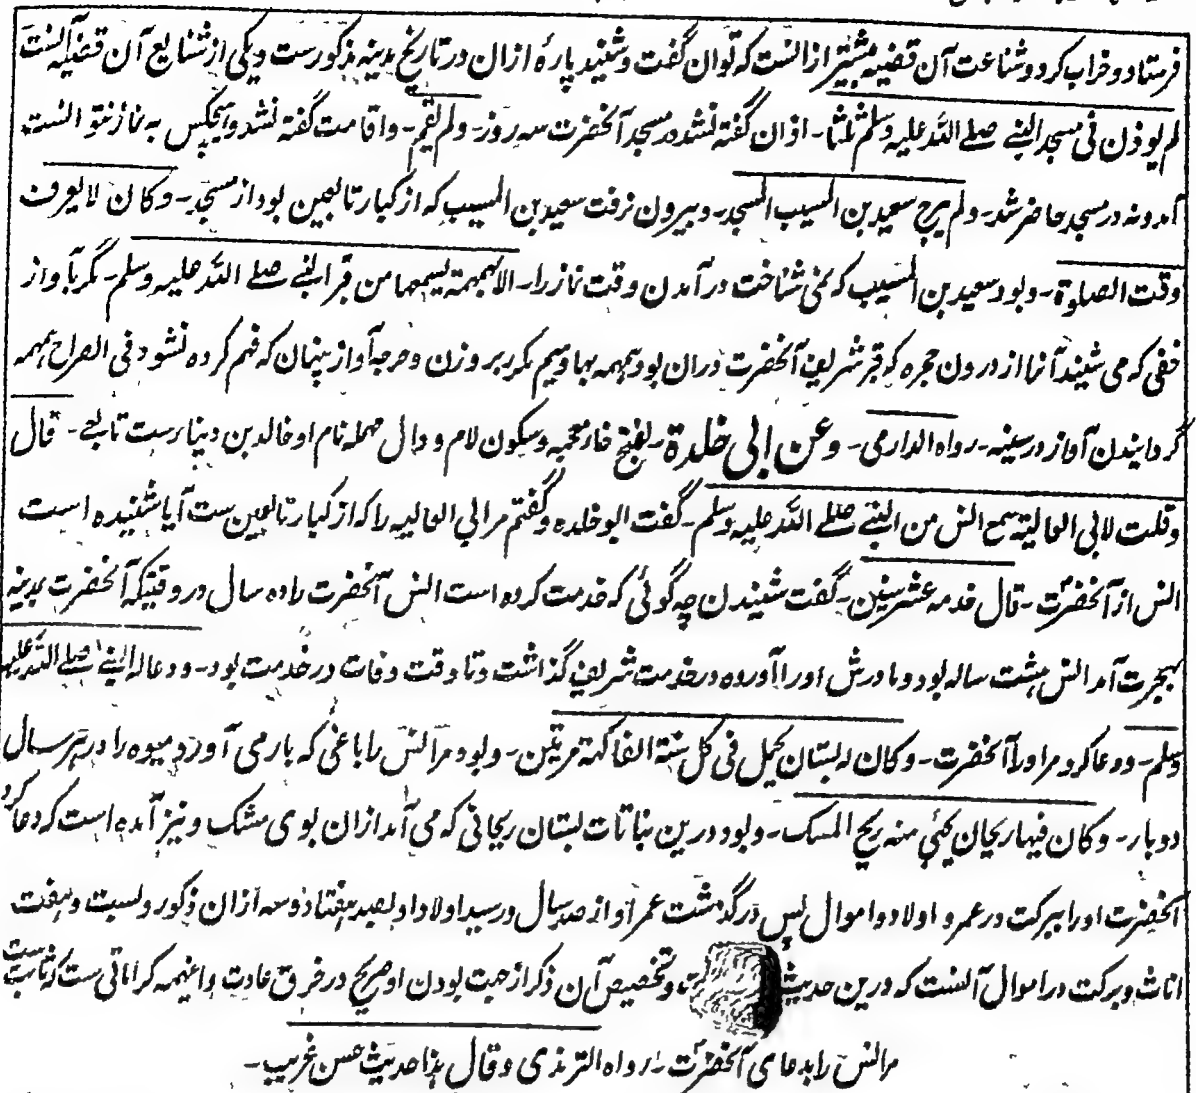 فرستاد و خراب کرد و شناعت آن قضیه بیشتر ازانست که توان گفت و شنید پارهٔ ازان در تاریخ مدینه مذکورست و یکی از شنایع آن قضیه آنست
لم یوذن فی مسجد النبی صلی الله علیه وسلم ثلثا۔ اذان گفته نشد در مسجد آنحضرت سه روز۔ ولم یقم۔ واقامت گفته نشد و هیچکس به نماز نتوانست
آمد و نه در مسجد حاضر شد۔ ولم یبرح سعید بن المسیب المسجد۔ و بیرون نرفت سعید بن المسیب که از کبار تابعین بود از مسجد۔ وکان لا یعرف
وقت الصلوة۔ و بود سعید بن المسیب که نمی شناخت در آمدن وقت نماز را۔ الا بهمهمة یسمعها من قبر النبی صلی الله علیه وسلم۔ مگر بآواز
خفی که می شنید آنرا از درون حجره که قبر شریف آنحضرت دران بود همهمه بها و میم مکرر بر وزن دحرجه آواز پنهان که فهم کرده نشود فی الصراح همهمه
گردانیدن آواز در سینه۔ رواه الدارمی۔ وعن ابی خلدة۔ بفتح خاء معجمه و سکون لام و دال مهمله نام او خالد بن دینارست تابعی۔ قال
وقلت لابی العالیة سمع انس من النبی صلی الله علیه وسلم۔ گفت ابو خلده و گفتم مر ابی العالیه را که از کبار تابعین ست آیا شنیده است
انس از آنحضرت۔ قال خدمه عشر سنین۔ گفت شنیدن چه گوئی که خدمت کرده است انس آنحضرت را ده سال در وقتیکه آنحضرت بمدینه
بهجرت آمد انس هشت ساله بود و مادرش او را آورده در خدمت شریف گذاشت و تا وقت وفات در خدمت بود۔ ودعا له النبی صلی الله علیه
وسلم۔ و دعا کرد مر او را آنحضرت۔ وکان له بستان یحمل فی کل سنة الفاکهة مرتین۔ و بود مر انس را باغی که بار می آورد میوه را در هر سال
دوبار۔ وکان فیها ریحان یجئ منه ریح المسک۔ و بود درین نباتات بستان ریحانی که می آمد ازان بوی مشک و نیز آمده است که دعا کرد
آنحضرت او را ببرکت در عمر و اولاد و اموال پس درگذشت عمر او از صد سال و رسید اولاد او بصد هفتاد و سه ازان ذکور و بست و هفت
اناث و برکت در اموال آنست که درین حدیث و تخصیص آن ذکر از جهت بودن او صریح در خرق عادت و اینهمه کراماتی ست که ثابت ست
مر انس را بدعای آنحضرت۔ رواه الترمذی وقال هذا حدیث حسن غریب۔